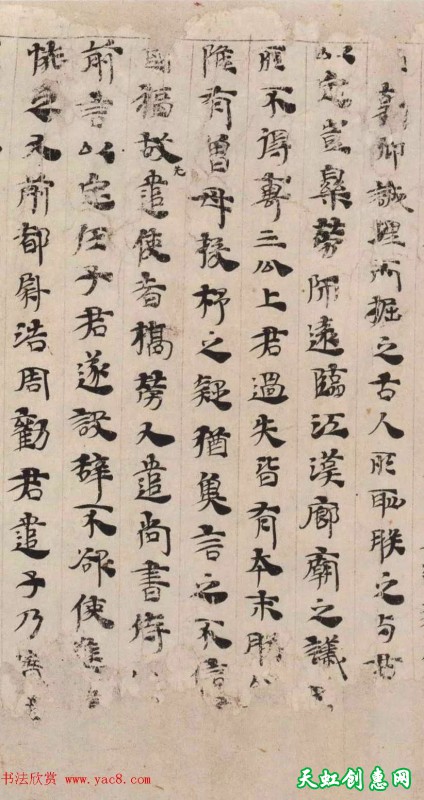 朝仰誠埋而掘之古人所恥朕之与君
以定豈樂勞師遠臨江漢廊廟之議
所不得專三公上君過失皆有本末朕以
雖有曾母投杼之疑猶冀言之不信
國福故先遣使者犒勞又遣尚書侍
前言以定任子君遂設辭不欲使進
恠之又前都尉浩周勸君遣子乃實
书法欣赏 www.yac8.com
天虹创惠网